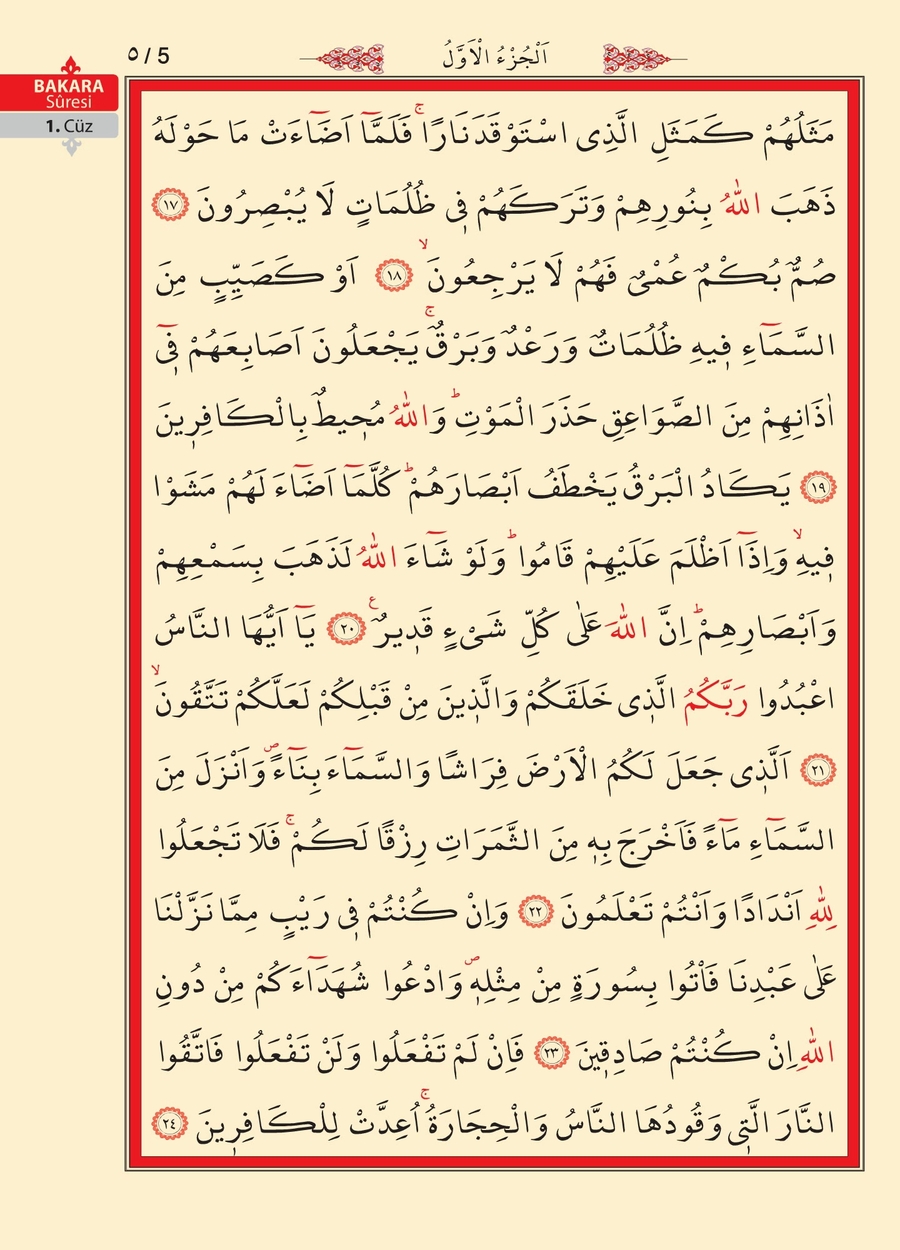 ٥ / 5
اَلْجُزْءُ الْاَوَّلُ
BAKARA
Sûresi
1. Cüz
مَثَلُهُمْ كَمَثَلِ الَّذِى اسْتَوْقَدَ نَارًاۚ فَلَمَّٓا اَضَٓاءَتْ مَا حَوْلَهُ
ذَهَبَ اللّٰهُ بِنُورِهِمْ وَتَرَكَهُمْ فٖى ظُلُمَاتٍ لَا يُبْصِرُونَ ﴿١٧﴾
صُمٌّ بُكْمٌ عُمْىٌ فَهُمْ لَا يَرْجِعُونَۙ ﴿١٨﴾ اَوْ كَصَيِّبٍ مِنَ
السَّمَٓاءِ فٖيهِ ظُلُمَاتٌ وَرَعْدٌ وَبَرْقٌۚ يَجْعَلُونَ اَصَابِعَهُمْ فٖٓى
اٰذَانِهِمْ مِنَ الصَّوَاعِقِ حَذَرَ الْمَوْتِؕ وَاللّٰهُ مُحٖيطٌ بِالْكَافِرٖينَ
﴿١٩﴾ يَكَادُ الْبَرْقُ يَخْطَفُ اَبْصَارَهُمْؕ كُلَّمَٓا اَضَٓاءَ لَهُمْ مَشَوْا
فٖيهِۙ وَاِذَٓا اَظْلَمَ عَلَيْهِمْ قَامُواؕ وَلَوْ شَٓاءَ اللّٰهُ لَذَهَبَ بِسَمْعِهِمْ
وَاَبْصَارِهِمْؕ اِنَّ اللّٰهَ عَلٰى كُلِّ شَىْءٍ قَدٖيرٌ ع ﴿٢٠﴾ يَٓا اَيُّهَا النَّاسُ
اعْبُدُوا رَبَّكُمُ الَّذٖى خَلَقَكُمْ وَالَّذٖينَ مِنْ قَبْلِكُمْ لَعَلَّكُمْ تَتَّقُونَۙ
﴿٢١﴾ اَلَّذٖى جَعَلَ لَكُمُ الْاَرْضَ فِرَاشًا وَالسَّمَٓاءَ بِنَٓاءًࣕ وَاَنْزَلَ مِنَ
السَّمَٓاءِ مَٓاءً فَاَخْرَجَ بِهٖ مِنَ الثَّمَرَاتِ رِزْقًا لَكُمْۚ فَلَا تَجْعَلُوا
لِلّٰهِ اَنْدَادًا وَاَنْتُمْ تَعْلَمُونَ ﴿٢٢﴾ وَاِنْ كُنْتُمْ فٖى رَيْبٍ مِمَّا نَزَّلْنَا
عَلٰى عَبْدِنَا فَاْتُوا بِسُورَةٍ مِنْ مِثْلِهٖࣕ وَادْعُوا شُهَدَٓاءَكُمْ مِنْ دُونِ
اللّٰهِ اِنْ كُنْتُمْ صَادِقٖينَ ﴿٢٣﴾ فَاِنْ لَمْ تَفْعَلُوا وَلَنْ تَفْعَلُوا فَاتَّقُوا
النَّارَ الَّتٖى وَقُودُهَا النَّاسُ وَالْحِجَارَةُۚ اُعِدَّتْ لِلْكَافِرٖينَ ﴿٢٤﴾